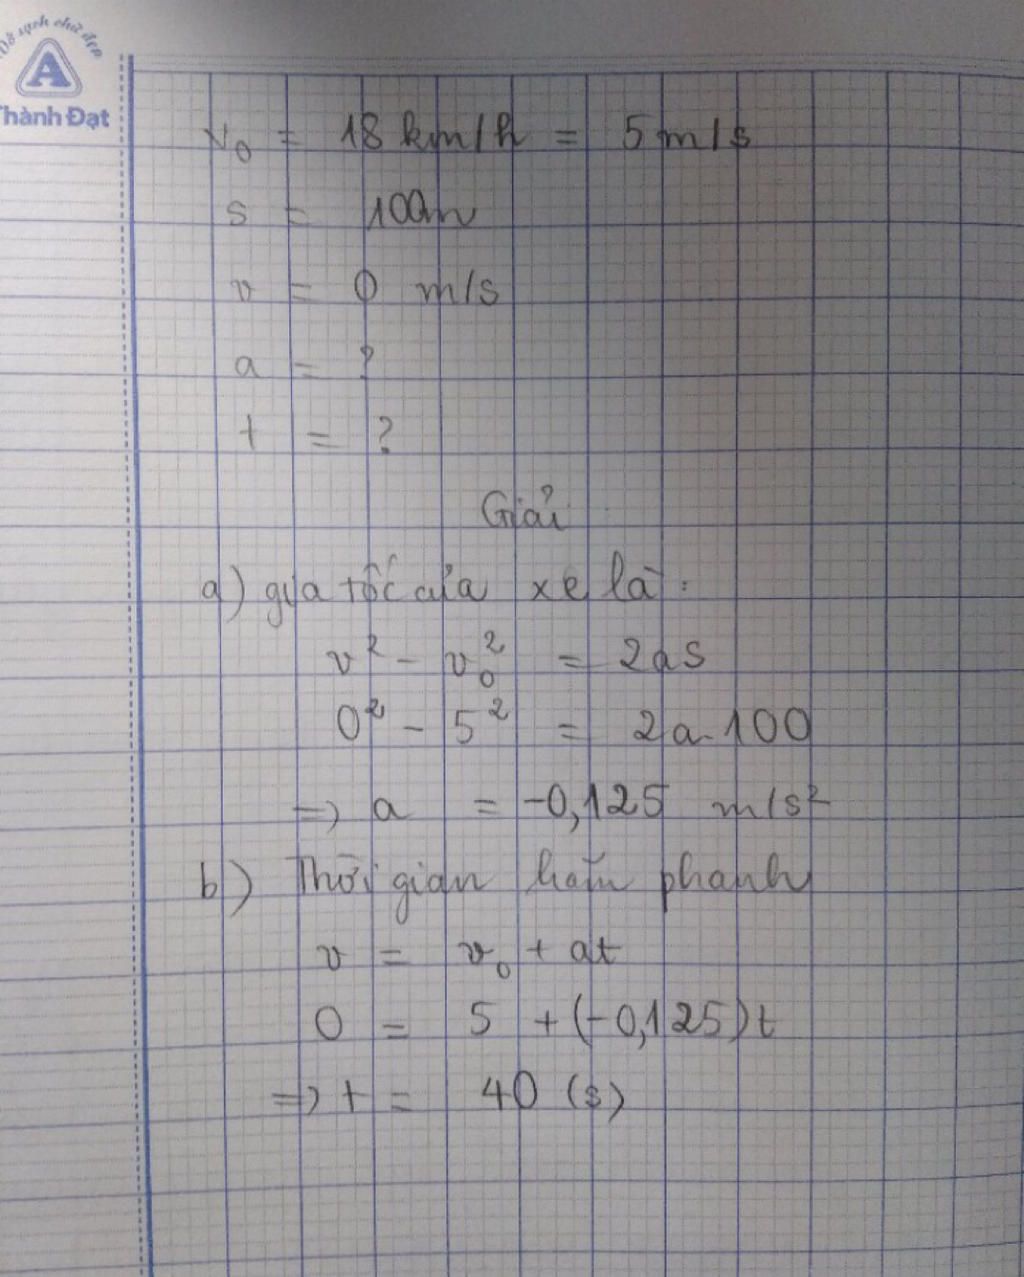 Vở sạch chữ đẹp
A
Thành Đạt
v₀ = 18 km/h = 5 m/s
s = 100m
v = 0 m/s
a = ?
t = ?
Giải
a) gia tốc của xe là :
v² - v₀² = 2as
0² - 5² = 2a.100
=> a = -0,125 m/s²
b) Thời gian hãm phanh
v = v₀ + at
0 = 5 + (-0,125)t
=> t = 40 (s)